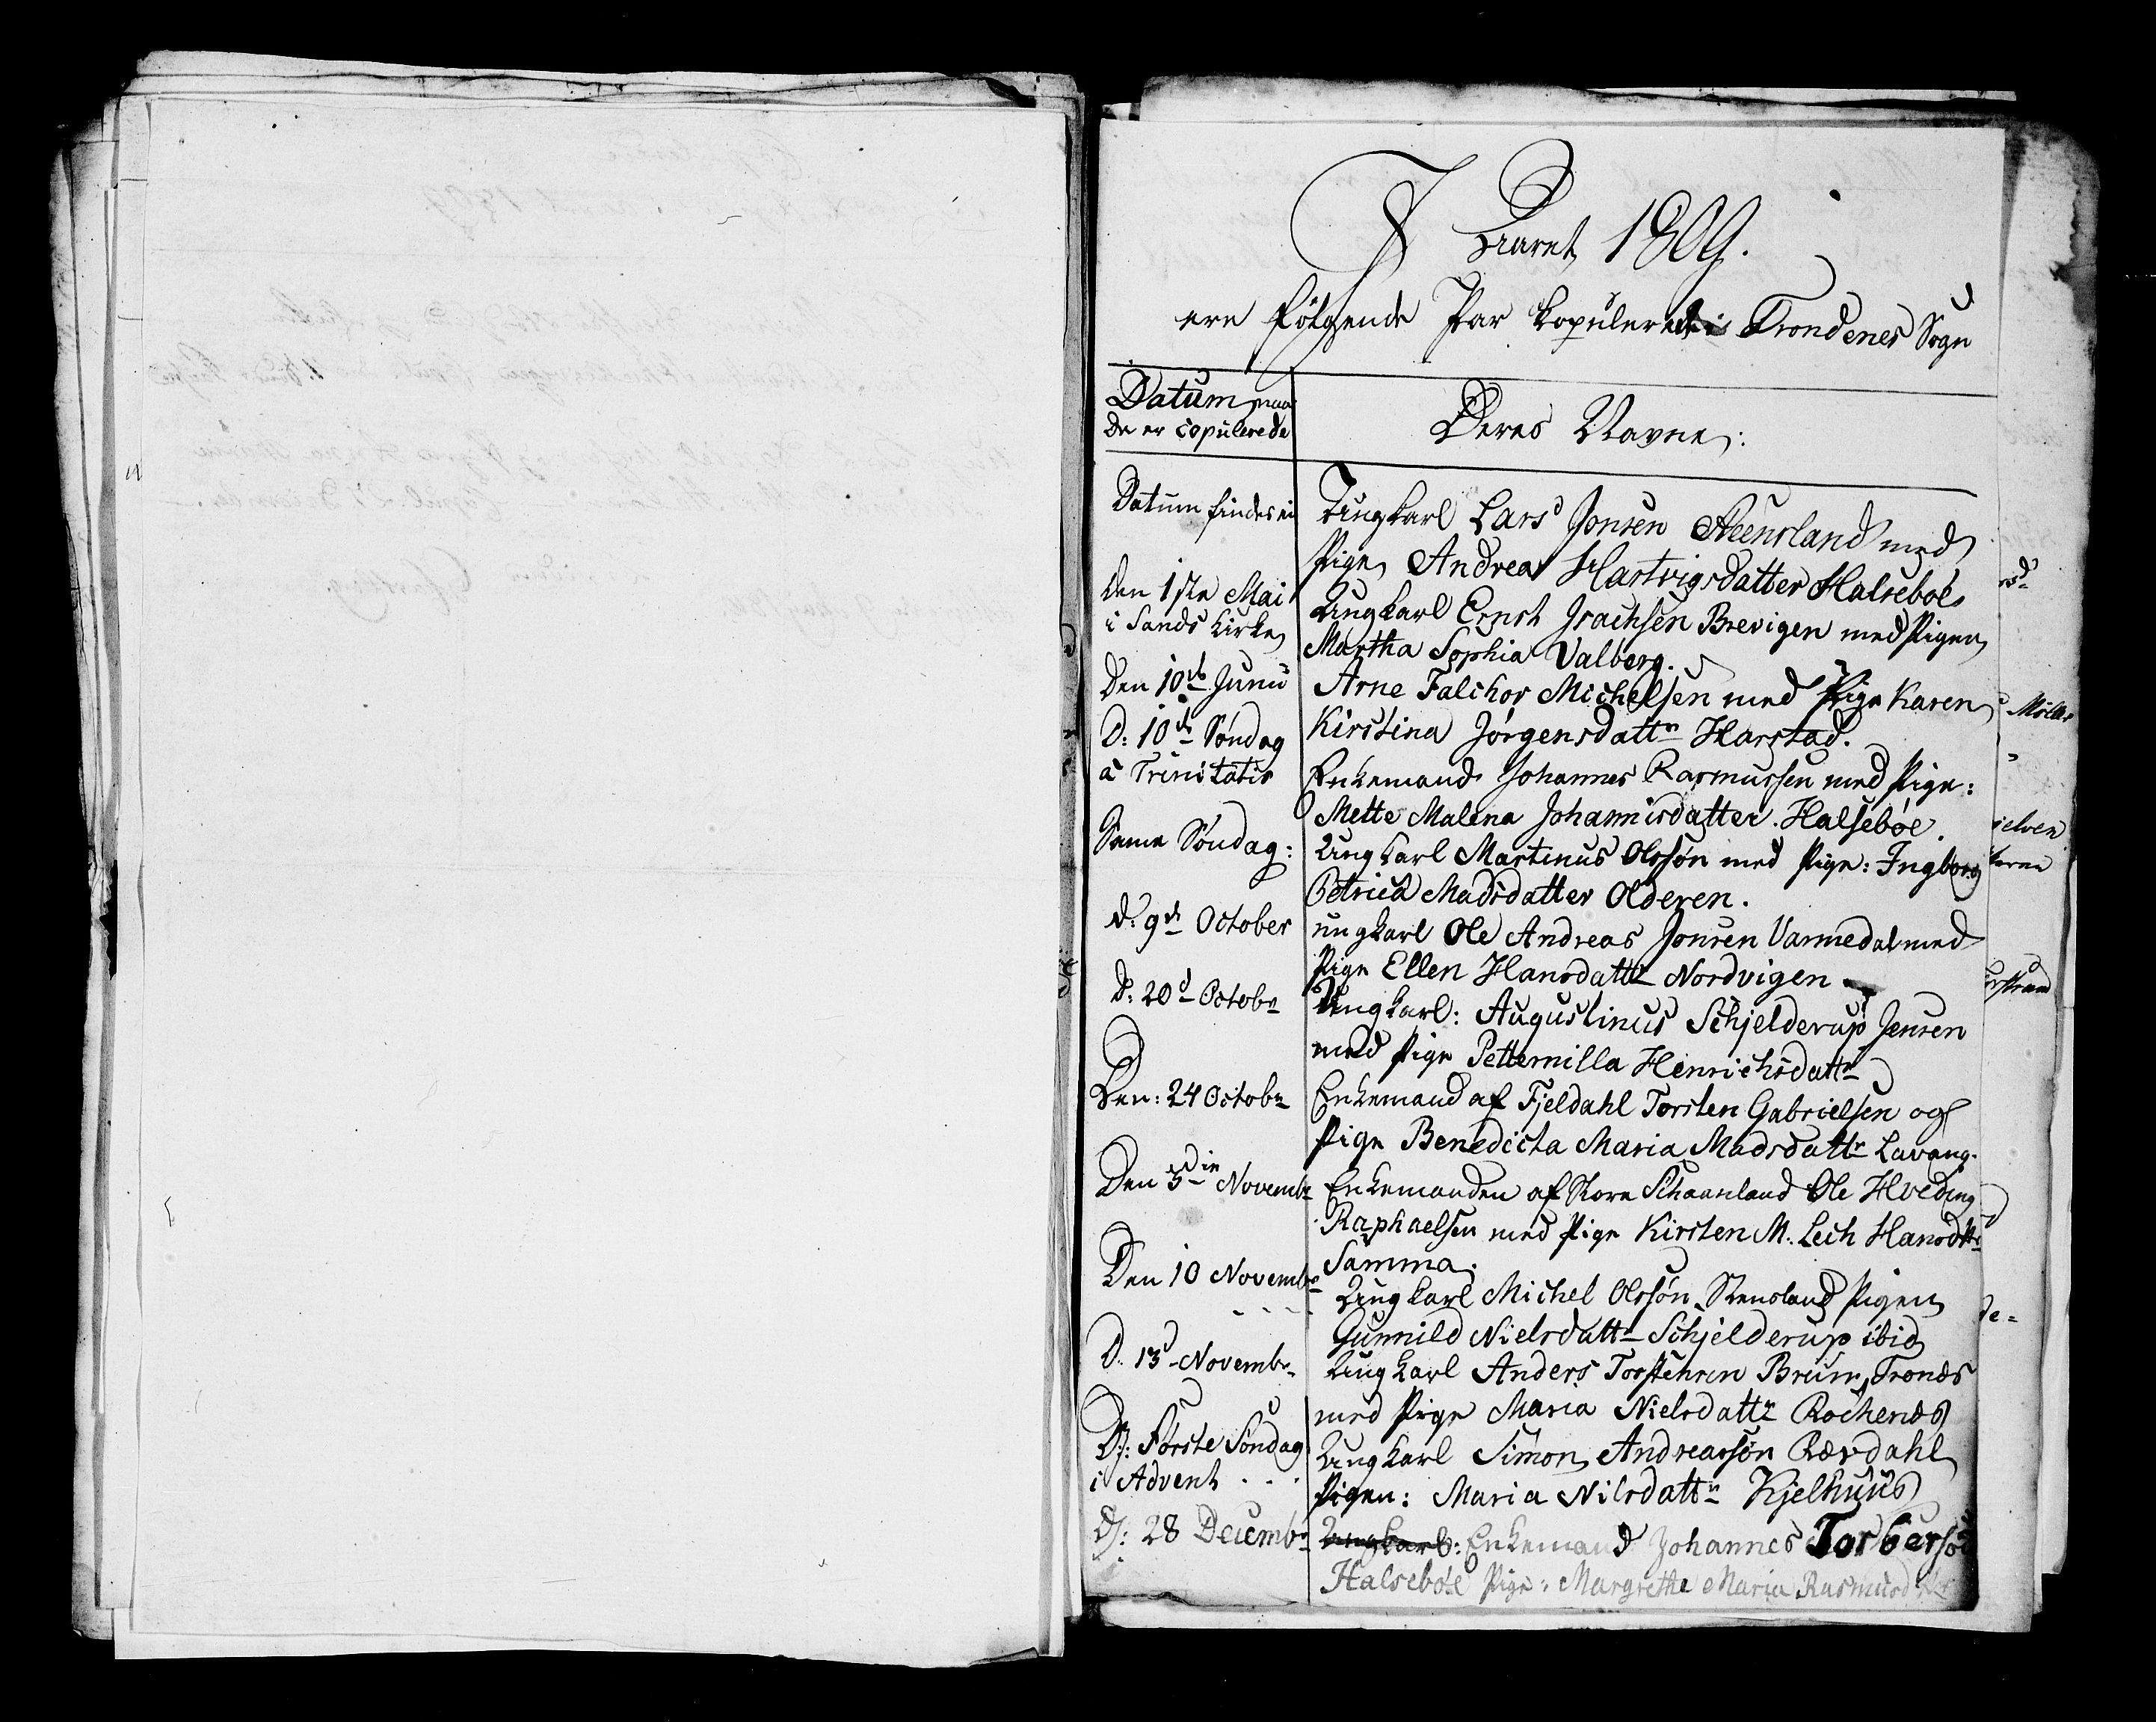 I Aaret 1809.
ere følgende Par kopulerede i Trondenes Sogn
Datum naar
de er copulerede
Deres Navne:
Datum findes ei
Ungkarl Lars Jonsen Steensland med
Pigen Andrea Hartvigsdatter Halseboe
den 1ste Mai
i Sands Kirke
Ungkarl Ernst Isachsen Brevigen med Pigen
Martha Sophia Valberg.
Den 10de Junii
Arne Falchor Michelsen med Pige Karen
D: 10de Søndag
Kirstina Jørgensdattr Harstad.
a Trinitatis
Enkemand Johannes Rasmussen med Pige:
Mette Malena Johannisdatter Halsebøe.
Same Søndag:
Ungkarl Martinus Olssøn med Pige: Ingborg
Petrica Madsdatter Olderen.
d: 9de October
ungkarl Ole Andreas Jonsen Varmedal med
Pige Ellen Hansdattr Nordvigen
D: 20d Octobr
Ungkarl: Augustinus Schjelderup Jensen
med Pige Petternilla Henrichsdattr
Den: 24 Octobr
Enkemand af Fjeldahl Torsten Gabrielsen og
Pige Benedicta Maria Madsdattr Lavang.
Den 3die Novembr
Enkemanden af Store Schaanland Ole Hveding
Raphaelsen med Pige Kirsten M. Lech Hansdttr
Samma.
Den 10 Novembr
Ungkarl Michel Olssøn Stensland Pigen
Gunnild Nielsdattr Schjelderup ibid
D. 13d Novembr
Ungkarl Anders Torstensen Brun Tronds
med Pige Maria Nielsdattr Rochenes
D: Første Søndag
i Advent . . .
Ungkarl Simon Andreassøn Rævdahl
Pigen: Maria Nilsdattr Kjelhuus
D: 28 Decembr
Ungkarl: Enkemand Johannes Torbersøn
Halsebøe Pige: Margrethe Maria Rasmusd